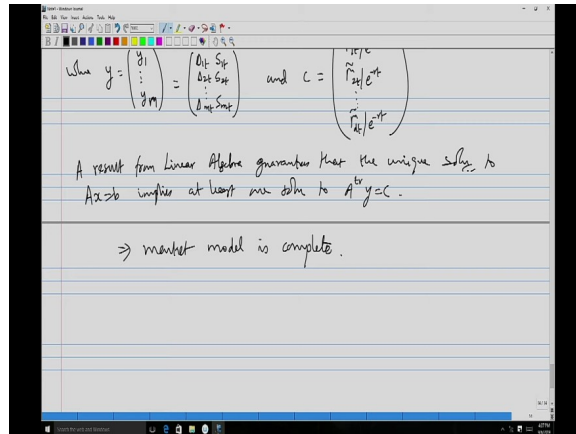 Note1 - Windows Journal
File Edit View Insert Actions Tools Help
where y = (y1 ⋮ ym) = (Δ1t S1t Δ2t S2t ⋮ Δmt Smt) and c = (r̃1t/e^-rt r̃2t/e^-rt ⋮ r̃dt/e^-rt)
A result from Linear Algebra guarantees that the unique soln to
Ax=b implies at least one soln to A^tr y=c.
⇒ market model is complete.
Search the web and Windows
4:27 PM